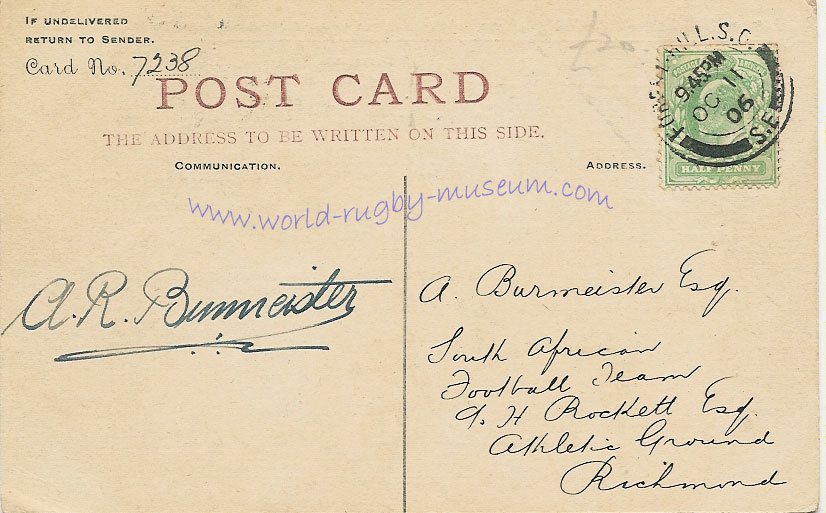 IF UNDELIVERED
RETURN TO SENDER.
Card No. 7238
£20
POST CARD
THE ADDRESS TO BE WRITTEN ON THIS SIDE.
COMMUNICATION.
ADDRESS.
HILL.S.O.
9.45PM
OC 11
06
S.E
HALF PENNY
www.world-rugby-museum.com
A.R. Burmeister
A. Burmeister Esq.
South African
Football Team
H Rockett Esq.
Athletic Ground
Richmond